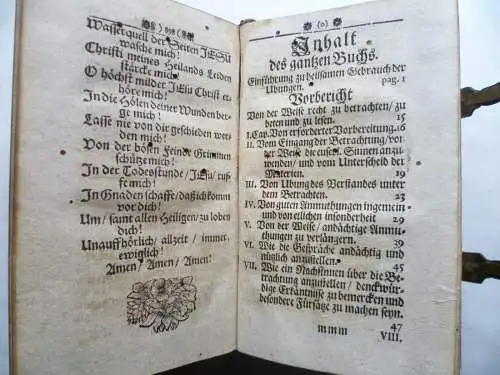 Wasser quell der Seiten JESU
wasche mich!
Christi meines Heilands Leiden
stärcke mich!
O höchst milder JEsu Christ er-
höre mich!
In die Hölen deiner Wunden ber-
ge mich!
Lasse nie von dir geschieden wer-
den mich!
Von der bösen Feinde Grimmen
schütze mich!
In der Todesstunde / JEsu / ruf-
fe mich!
In Gnaden schaffe / daß ich komm
vor dich!
Um / samt allen Heiligen / zu loben
dich!
Unaufhörlich / allzeit / immer,
ewiglich!
Amen / Amen / Amen!
(o)
Inhalt
des gantzen Buchs.
Einführung zu heilsamen Gebrauch der
Ubungen. pag. 1
Vorbericht
Von der Weise recht zu betrachten / zu
beten und zu lesen. 15
I. Cap. Von erforderter Vorbereitung. 16
II. Vom Eingang der Betrachtung / vor
der Weise die eusserl. Sinnen anzu-
wenden / und vom Unterscheid der
Materien. 19
III. Von Ubung des Verstandes unter
dem Betrachten. 23
IV. Von guten Anmuthungen ingemein
und von etlichen insonderheit 29
V. Von der Weise / andächtige Anmu-
thungen zu verlängern. 39
VI. Wie die Gespräche andächtig und
nützlich anzustellen. 45
VII. Wie ein Nachsinnen über die Be-
trachtung anzustellen / denckwür-
dige Erkäntnisse zu bemercken und
besondere Fürsätze zu machen seyn.
47
mmm VIII.